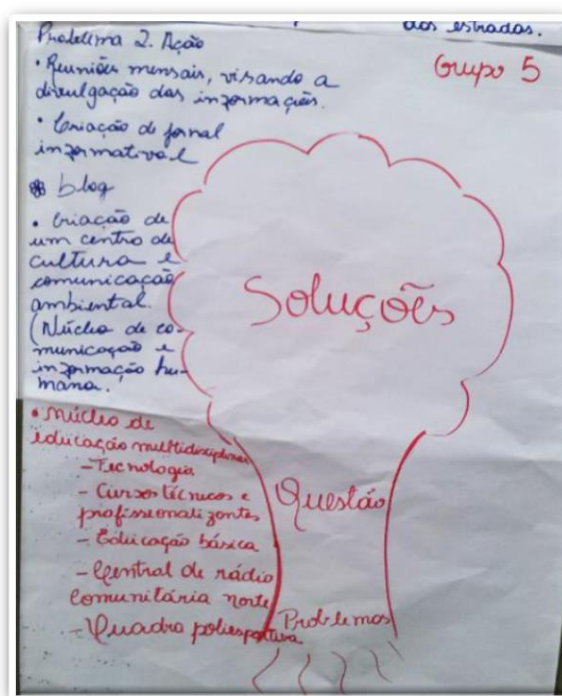 dos estradas.
Problema 2. Ação
Grupo 5
• Reuniões mensais, visando a
divulgação das informações.
• Criação de jornal
informatival
blog
• Criação de
um centro de
cultura e
comunicação
ambiental.
(Núcleo de co-
municação e
informação hu-
mana.
• Núcleo de
educação multidisciplinar
- Tecnologia
- Cursos técnicos e
profissionalizantes
- Educação básica
- Central de rádio
comunitária norte
- Quadra poliesportiva
Soluções
Questão
Problemas